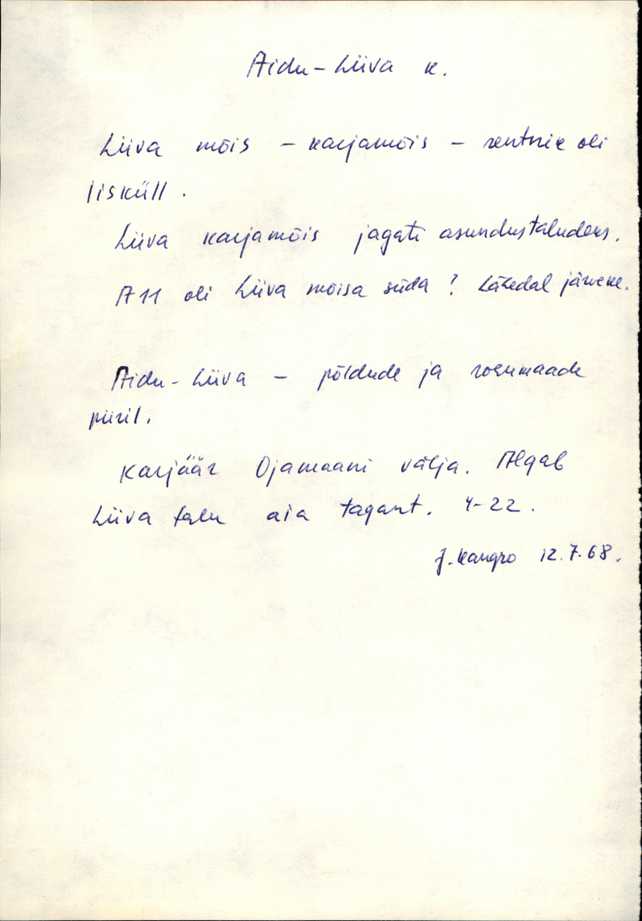 Aidu-Liiva k.
Liiva mõis - karjamõis - rentnik oli
Üsküll.
Liiva karjamõis jagati asundustaludeks.
A 11 oli Liiva mõisa süda? Lähedal järveke.
Aidu-Liiva - põldude ja rohumaade
piiril.
Karjäär Ojamaani välja. Algab
Liiva talu aia tagant. 4-22.
J. Kangro 12.7.68.